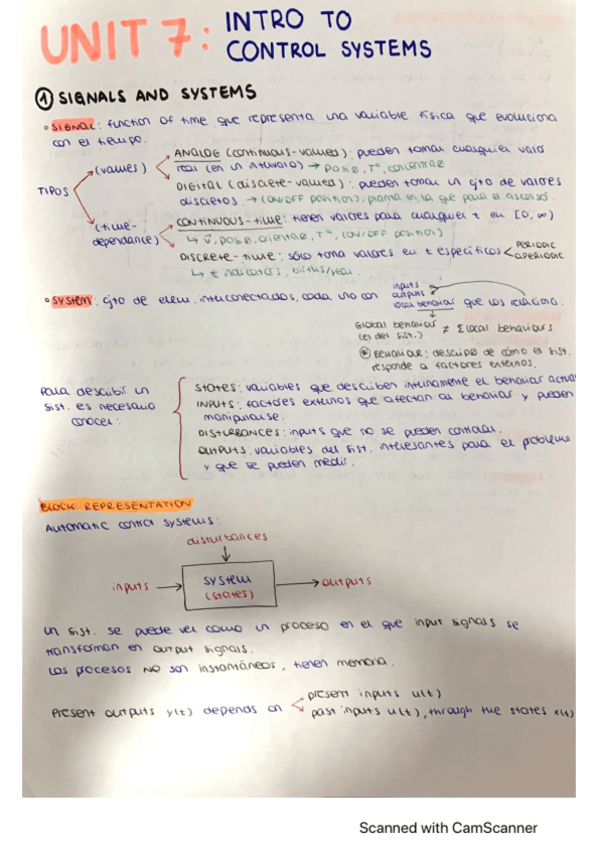 UNIT 7: INTRO TO
CONTROL SYSTEMS
① SIGNALS AND SYSTEMS
• SIGNAL: function of time que representa una variable física que evoluciona
con el tiempo.
TIPOS
(values)
ANALOG (continuous-valued): pueden tomar cualquier valor
real (en un intervalo) → posiç, Tª,
DIGITAL (discrete-valued): pueden tomar un cjto de valores
discretos. → (ON/OFF position), planta en la que para el ascensor.
(time-
dependance)
CONTINUOUS-time: tienen valores para cualquier t en [0, ∞)
↳ v, posiç, Tª, (ON/OFF position)
DISCRETE-time: sólo toma valores en t específicos < PERIODIC
APERIODIC
↳ indicators, births/year.
• SYSTEM: cjto de elem. interconectados, cada uno con
inputs
outputs
local behaviour que los relaciona.
Global behaviour ≠ Σ local behaviours
(el del sist.)
* BEHAVIOUR: descripç de cómo el sist.
responde a factores externos.
Para describir un
sist. es necesario
conocer:
STATES: variables que describen internamente el behaviour actual
INPUTS: factores externos que afectan al behaviour y pueden
manipularse.
DISTURBANCES: inputs que no se pueden controlar.
OUTPUTS: variables del sist. interesantes para el problema
y que se pueden medir.
BLOCK REPRESENTATION
Automatic control systems:
disturbances
inputs → system → outputs
(states)
Un sist. se puede ver como un proceso en el que input signals se
transforman en output signals.
Los procesos NO son instantáneos, tienen memoria.
present inputs u(t)
Present outputs y(t) depends on
past inputs u(t), through the states x(t)
Scanned with CamScanner